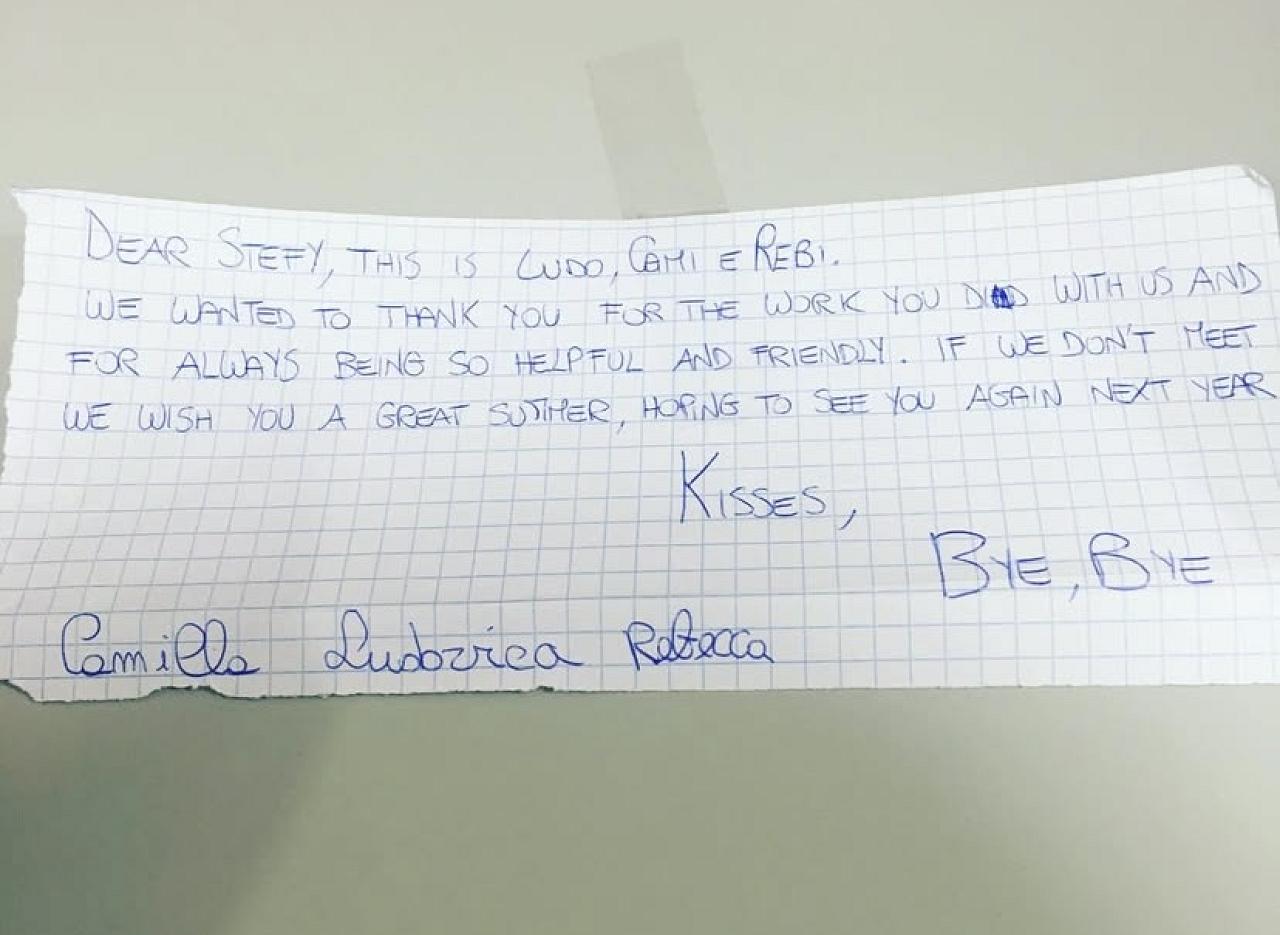 DEAR STEFY, THIS IS LUDO, CAMI E REBI.
WE WANTED TO THANK YOU FOR THE WORK YOU DID WITH US AND
FOR ALWAYS BEING SO HELPFUL AND FRIENDLY. IF WE DON'T MEET
WE WISH YOU A GREAT SUMMER, HOPING TO SEE YOU AGAIN NEXT YEAR
KISSES,
BYE, BYE
Camilla Ludovica Rebecca